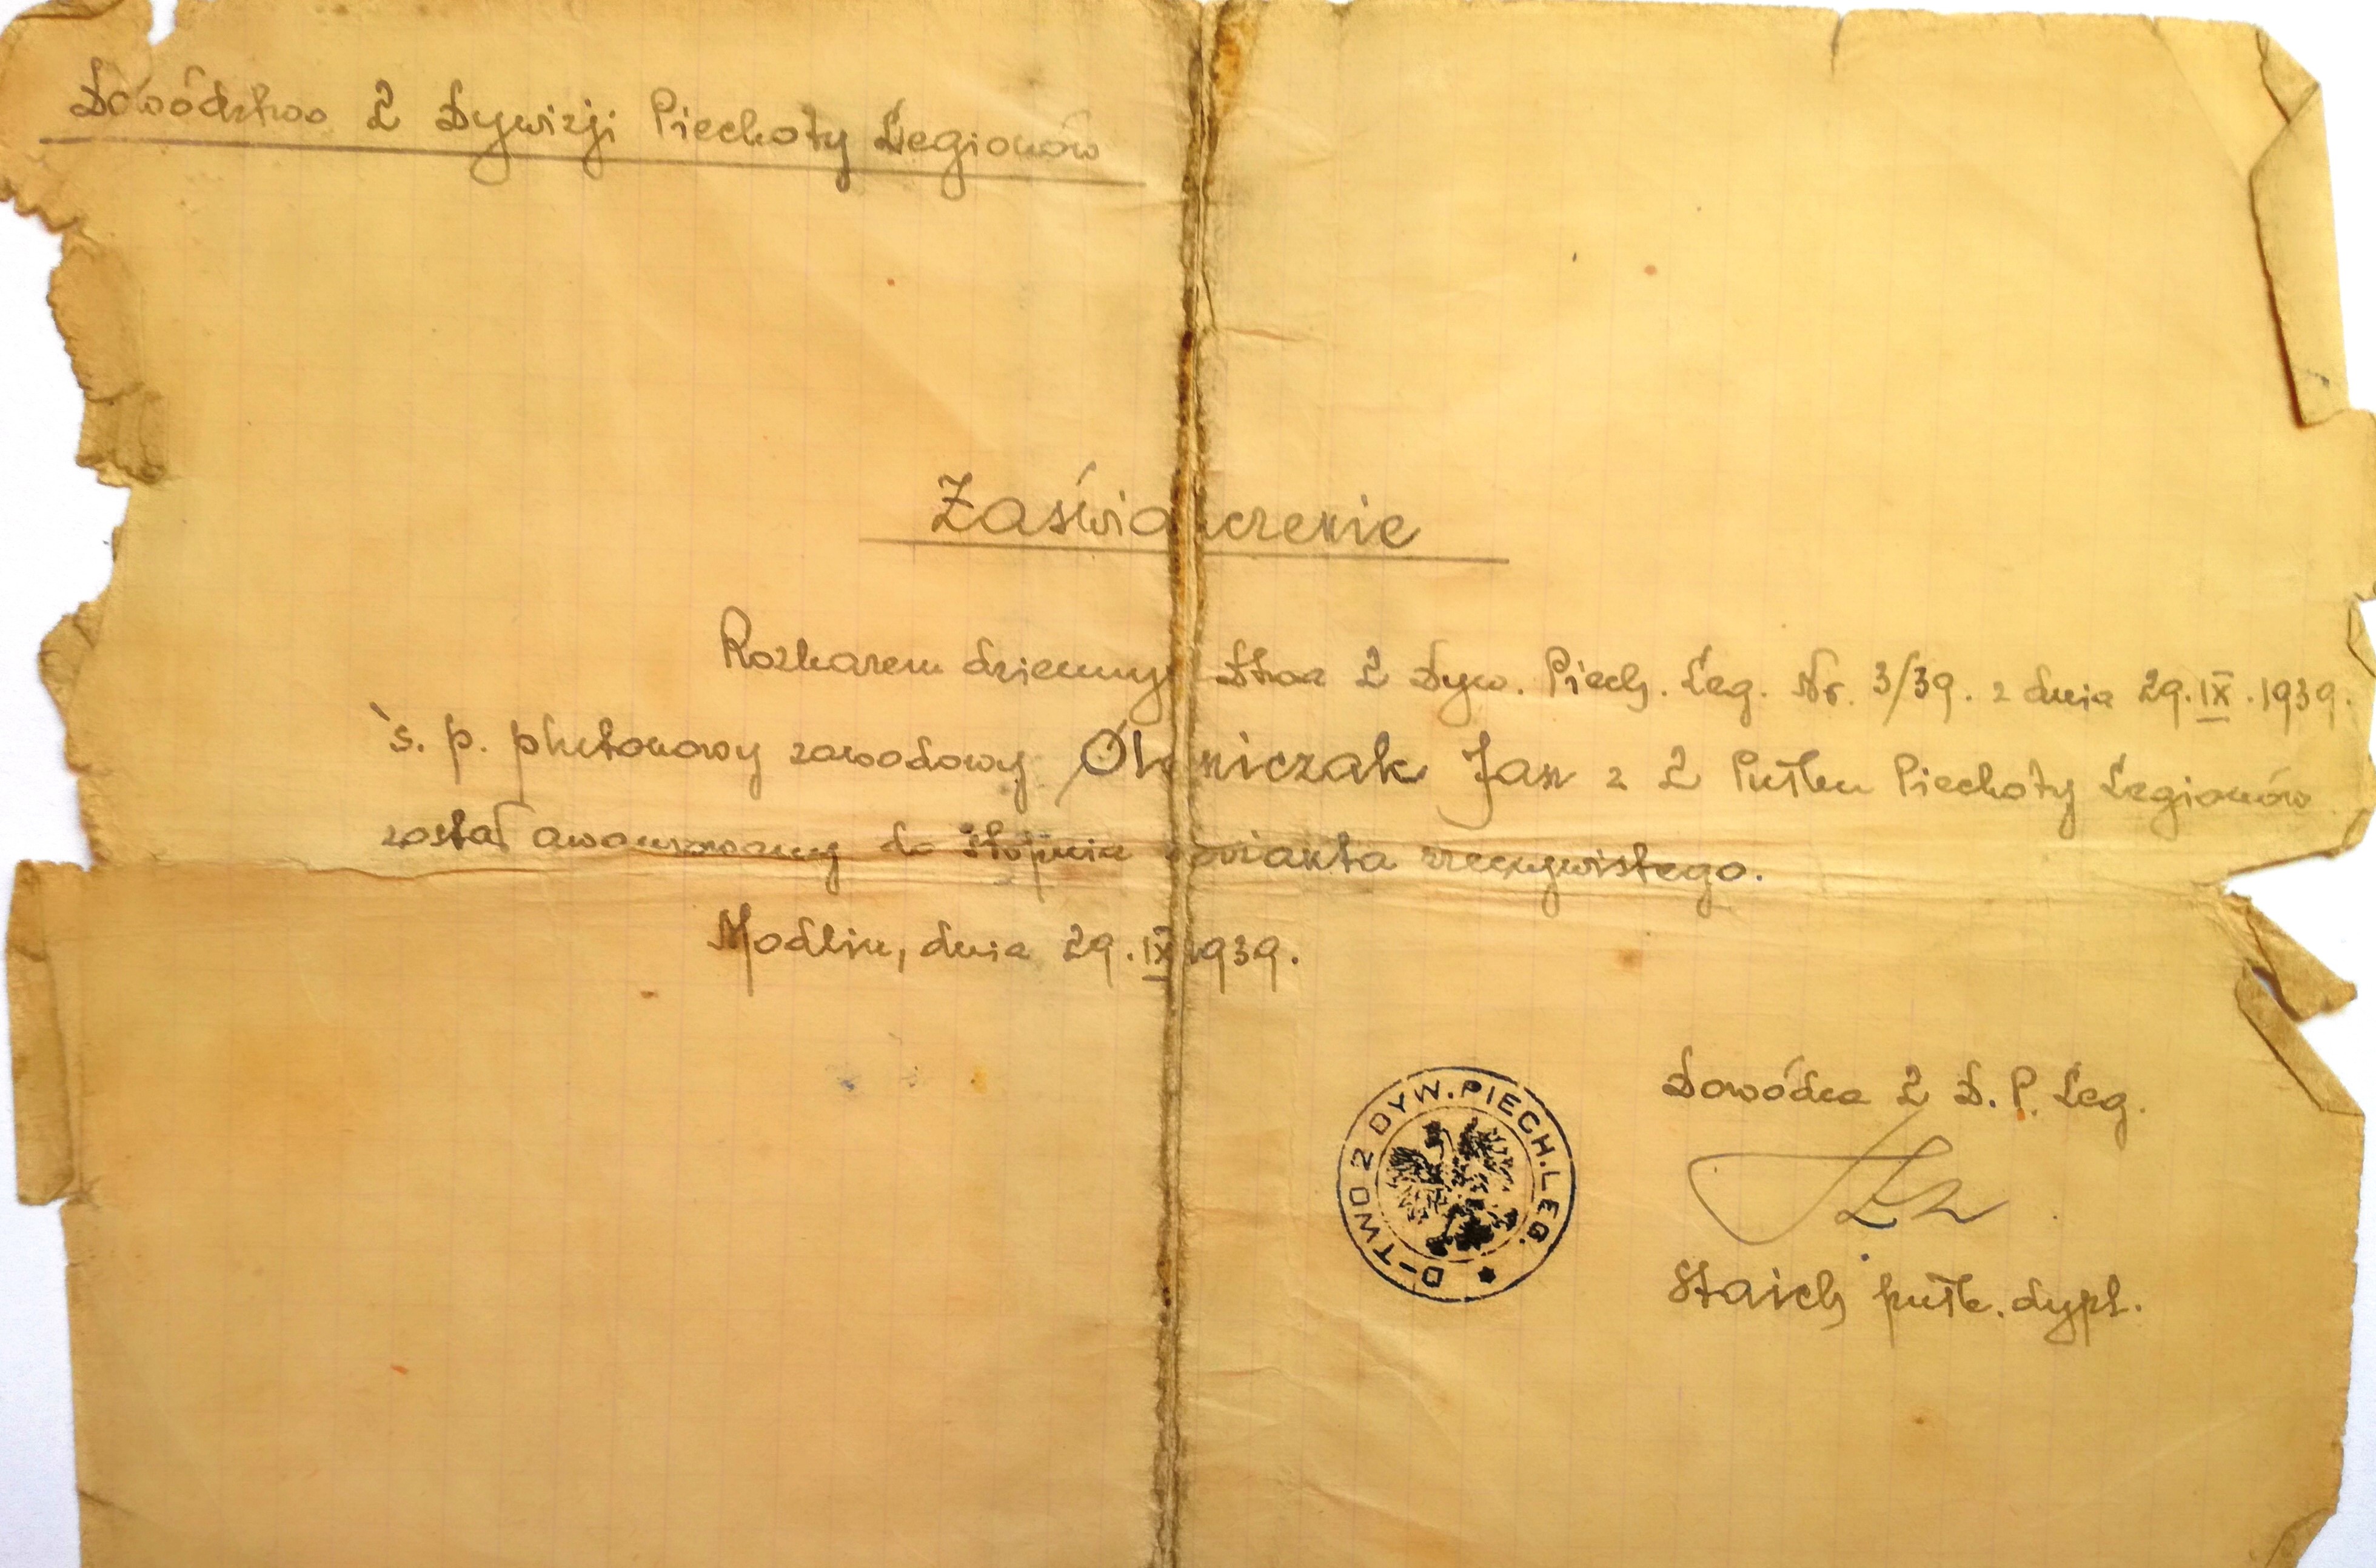 Dowództwo 2 Dywizji Piechoty Legionów
Zaświadczenie
Rozkazem dziennym D-twa 2 Dyw. Piech. Leg. Nr. 3/39. z dnia 29.IX.1939.
ś. p. plutonowy zawodowy Jan z 2 Pułku Piechoty Legionów
został awansowany do stopnia sierżanta rzeczywistego.
Modlin, dnia 29.IX.1939.
Dowódca 2 D. P. Leg.
D-TWO 2 DYW. PIECH. LEG.
Staich pułk. dypl.